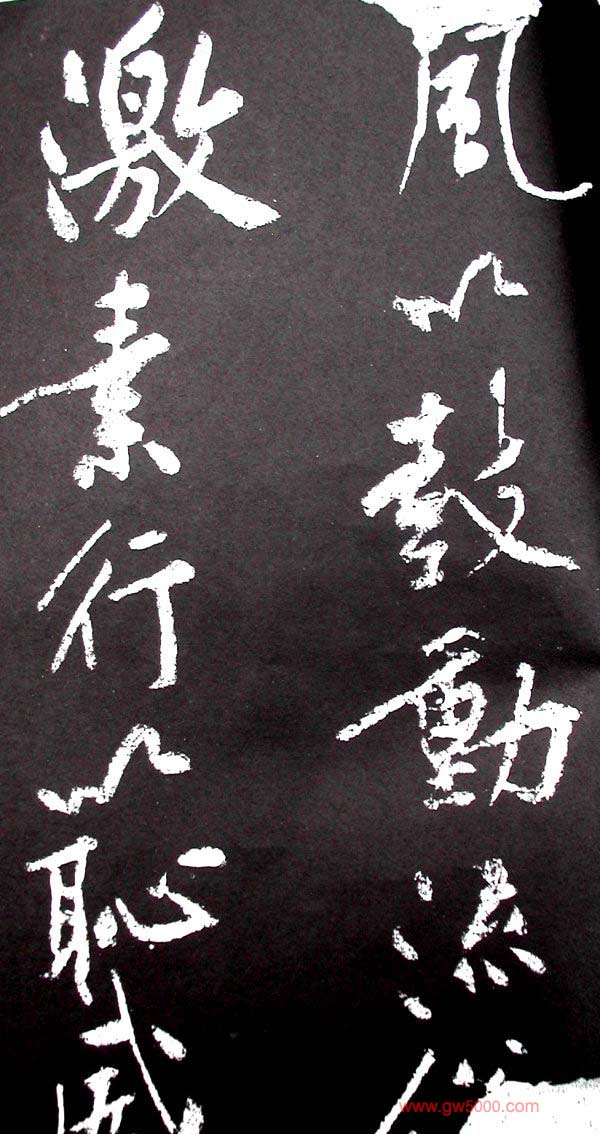 風以鼓動流俗
激素行以恥威
www.gw5000.com